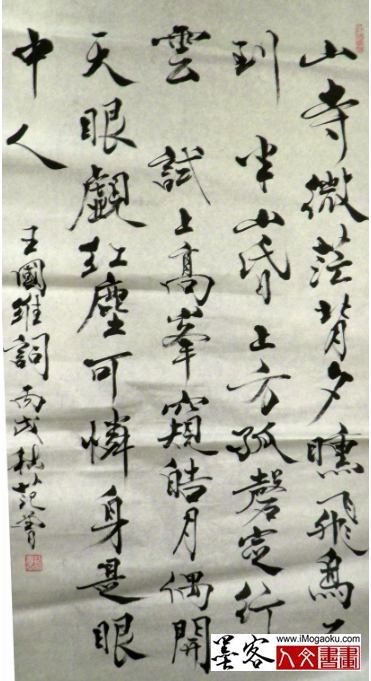 山寺微茫背夕曛飛鳥不
到半山昏上方孤磬定行
雲 試上高峯窺皓月偶開
天眼覷紅塵可憐身是眼
中人
王國維詞 丙戌
墨客
www.iMogaoku.com
人文書畫